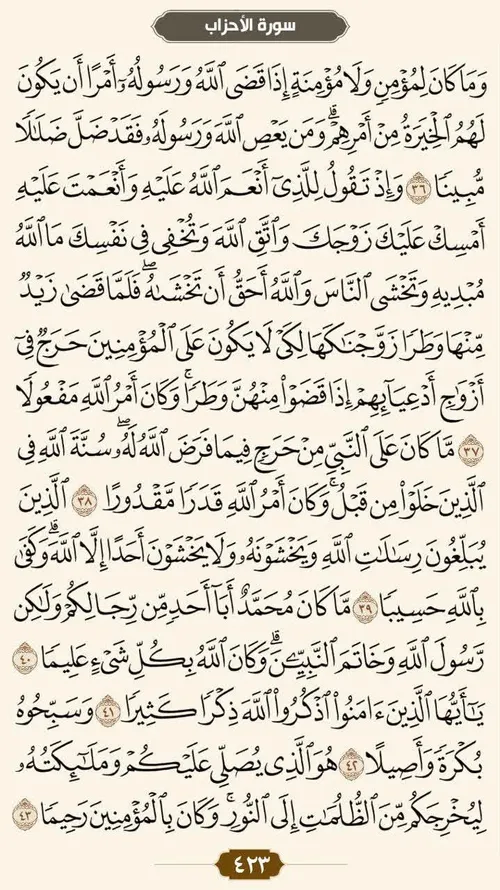 سورة الأحزاب
وَمَا كَانَ لِمُؤْمِنٍ وَلَا مُؤْمِنَةٍ إِذَا قَضَى ٱللَّهُ وَرَسُولُهُۥٓ أَمْرًا أَن يَكُونَ
لَهُمُ ٱلْخِيَرَةُ مِنْ أَمْرِهِمْ ۗ وَمَن يَعْصِ ٱللَّهَ وَرَسُولَهُۥ فَقَدْ ضَلَّ ضَلَٰلًا
مُّبِينًا ٣٦ وَإِذْ تَقُولُ لِلَّذِىٓ أَنْعَمَ ٱللَّهُ عَلَيْهِ وَأَنْعَمْتَ عَلَيْهِ
أَمْسِكْ عَلَيْكَ زَوْجَكَ وَٱتَّقِ ٱللَّهَ وَتُخْفِى فِى نَفْسِكَ مَا ٱللَّهُ
مُبْدِيهِ وَتَخْشَى ٱلنَّاسَ وَٱللَّهُ أَحَقُّ أَن تَخْشَىٰهُ ۖ فَلَمَّا قَضَىٰ زَيْدٌ
مِّنْهَا وَطَرًا زَوَّجْنَٰكَهَا لِكَىْ لَا يَكُونَ عَلَى ٱلْمُؤْمِنِينَ حَرَجٌ فِىٓ
أَزْوَٰجِ أَدْعِيَآئِهِمْ إِذَا قَضَوْا۟ مِنْهُنَّ وَطَرًا ۚ وَكَانَ أَمْرُ ٱللَّهِ مَفْعُولًا
٣٧ مَّا كَانَ عَلَى ٱلنَّبِىِّ مِنْ حَرَجٍ فِيمَا فَرَضَ ٱللَّهُ لَهُۥ ۖ سُنَّةَ ٱللَّهِ فِى
ٱلَّذِينَ خَلَوْا۟ مِن قَبْلُ ۚ وَكَانَ أَمْرُ ٱللَّهِ قَدَرًا مَّقْدُورًا ٣٨ ٱلَّذِينَ
يُبَلِّغُونَ رِسَٰلَٰتِ ٱللَّهِ وَيَخْشَوْنَهُۥ وَلَا يَخْشَوْنَ أَحَدًا إِلَّا ٱللَّهَ ۗ وَكَفَىٰ
بِٱللَّهِ حَسِيبًا ٣٩ مَّا كَانَ مُحَمَّدٌ أَبَآ أَحَدٍ مِّن رِّجَالِكُمْ وَلَٰكِن
رَّسُولَ ٱللَّهِ وَخَاتَمَ ٱلنَّبِيِّـۧنَ ۗ وَكَانَ ٱللَّهُ بِكُلِّ شَىْءٍ عَلِيمًا ٤٠
يَٰٓأَيُّهَا ٱلَّذِينَ ءَامَنُوا۟ ٱذْكُرُوا۟ ٱللَّهَ ذِكْرًا كَثِيرًا ٤١ وَسَبِّحُوهُ
بُكْرَةً وَأَصِيلًا ٤٢ هُوَ ٱلَّذِى يُصَلِّى عَلَيْكُمْ وَمَلَٰٓئِكَتُهُۥ
لِيُخْرِجَكُم مِّنَ ٱلظُّلُمَٰتِ إِلَى ٱلنُّورِ ۚ وَكَانَ بِٱلْمُؤْمِنِينَ رَحِيمًا ٤٣
٤٢٣